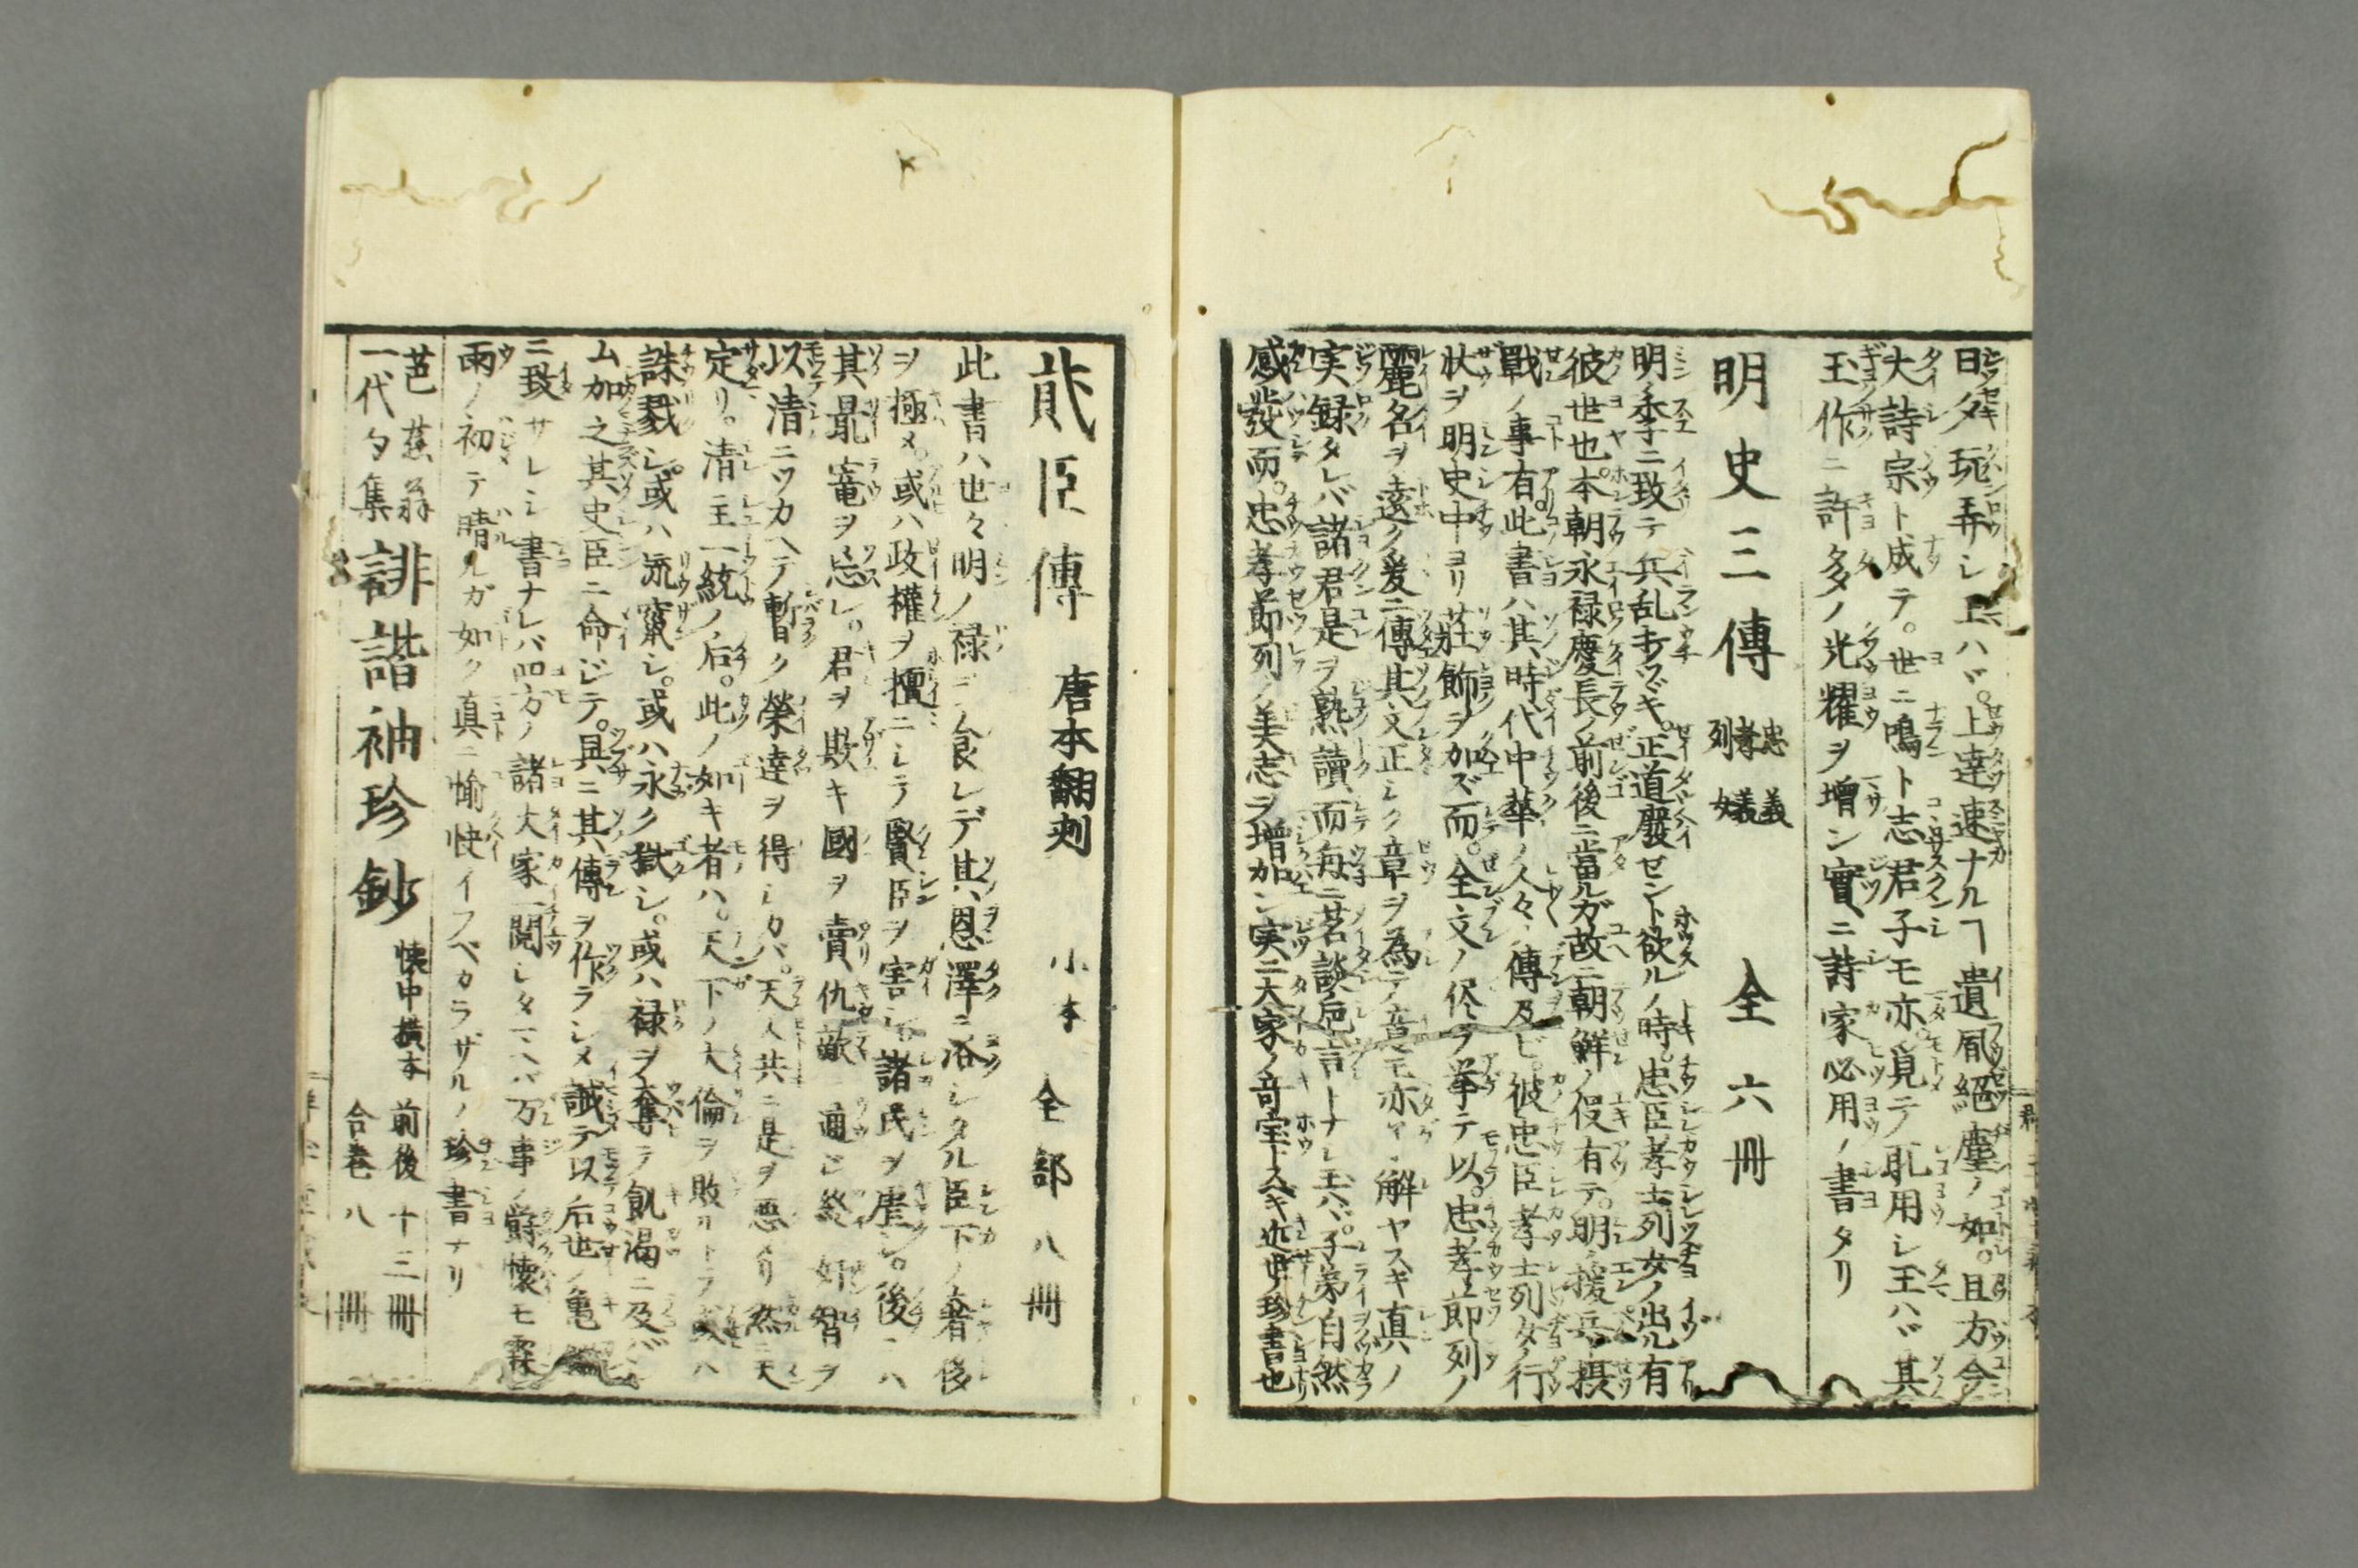 日夕玩弄シ玉ハヾ。上達速ナルヿ遺風絕塵ノ如。且方今
大詩宗ト成テ。世ニ鳴ト志君子モ亦。覓テ耽用シ玉ハヾ其
玉作ニ許多ノ光耀ヲ增ン實ニ詩家必用ノ書タリ
明史三傳 忠義孝義列女 全六冊
明ノ季ニ致テ兵乱打ツヅキ。正道廢セント欲ルノ時。忠臣孝士列女ノ出ル有
彼世也。本朝永禄慶長ノ前後ニ當ルガ故ニ朝鮮ノ役有テ。明ノ援兵摂
戰ノ事有。此書ハ其時代中華ノ人々ノ傳及ビ。彼忠臣孝士列女ノ行
狀ヲ明史中ヨリ莊飾ヲ加ズ而。全文ノ侭ヲ挙テ以。忠孝節列ノ
麗名ヲ遠ク爰ニ傳其文正シク章ヲ為テ意モ亦解ヤスキ真ノ
実録タレバ諸君是ヲ熟讀而毎ニ茗談巵言トナシ玉ハヾ。子弟自然
感發而。忠孝節列ノ美志ヲ増加ン実ニ大家ノ奇宝トスベキ近世ノ珍書也
貮臣傳 唐本翻刻 小本 全部八冊
此書ハ世々明ノ禄ヲ食レデ其恩澤ニ浴シタル臣下ノ奢侈
ヲ極メ。或ハ政權ヲ擅ニシテ賢臣ヲ害シ諸民ヲ虐シ。後ニハ
其最寵ヲ忘レ。君ヲ欺キ國ヲ賣仇敵ニ適ヒ終ニ奸智ヲ
以清ニツカヘテ暫ク榮達ヲ得シカバ。天人共ニ是ヲ悪メリ然ニ天
定リ。清主一統ノ后。此ノ如キ者ハ。天下ノ大倫ヲ敗ルトテ或ハ
誅戮シ。或ハ流竄シ。或ハ永ク獄シ。或ハ禄ヲ奪テ飢渇ニ及バシ
ム加之其史臣ニ命ジテ。具ニ其傳ヲ作ラシメ誡テ以后世ノ亀
ニ致サレシ書ナレバ四方ノ諸大家一閲シタマヘバ万事ノ欝懐モ霖
雨ノ初テ晴ルガ如ク真ニ愉快イフベカラザルノ珍書ナリ
芭蕉翁一代夕集 誹諧袖珍鈔 懐中横本 前後十三冊 合巻八冊